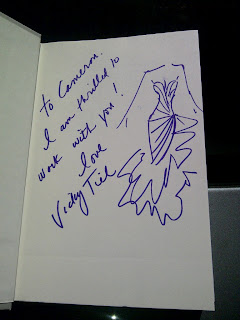 to Cameron.
I am thrilled to
work with you!
love
Vicky Tiel